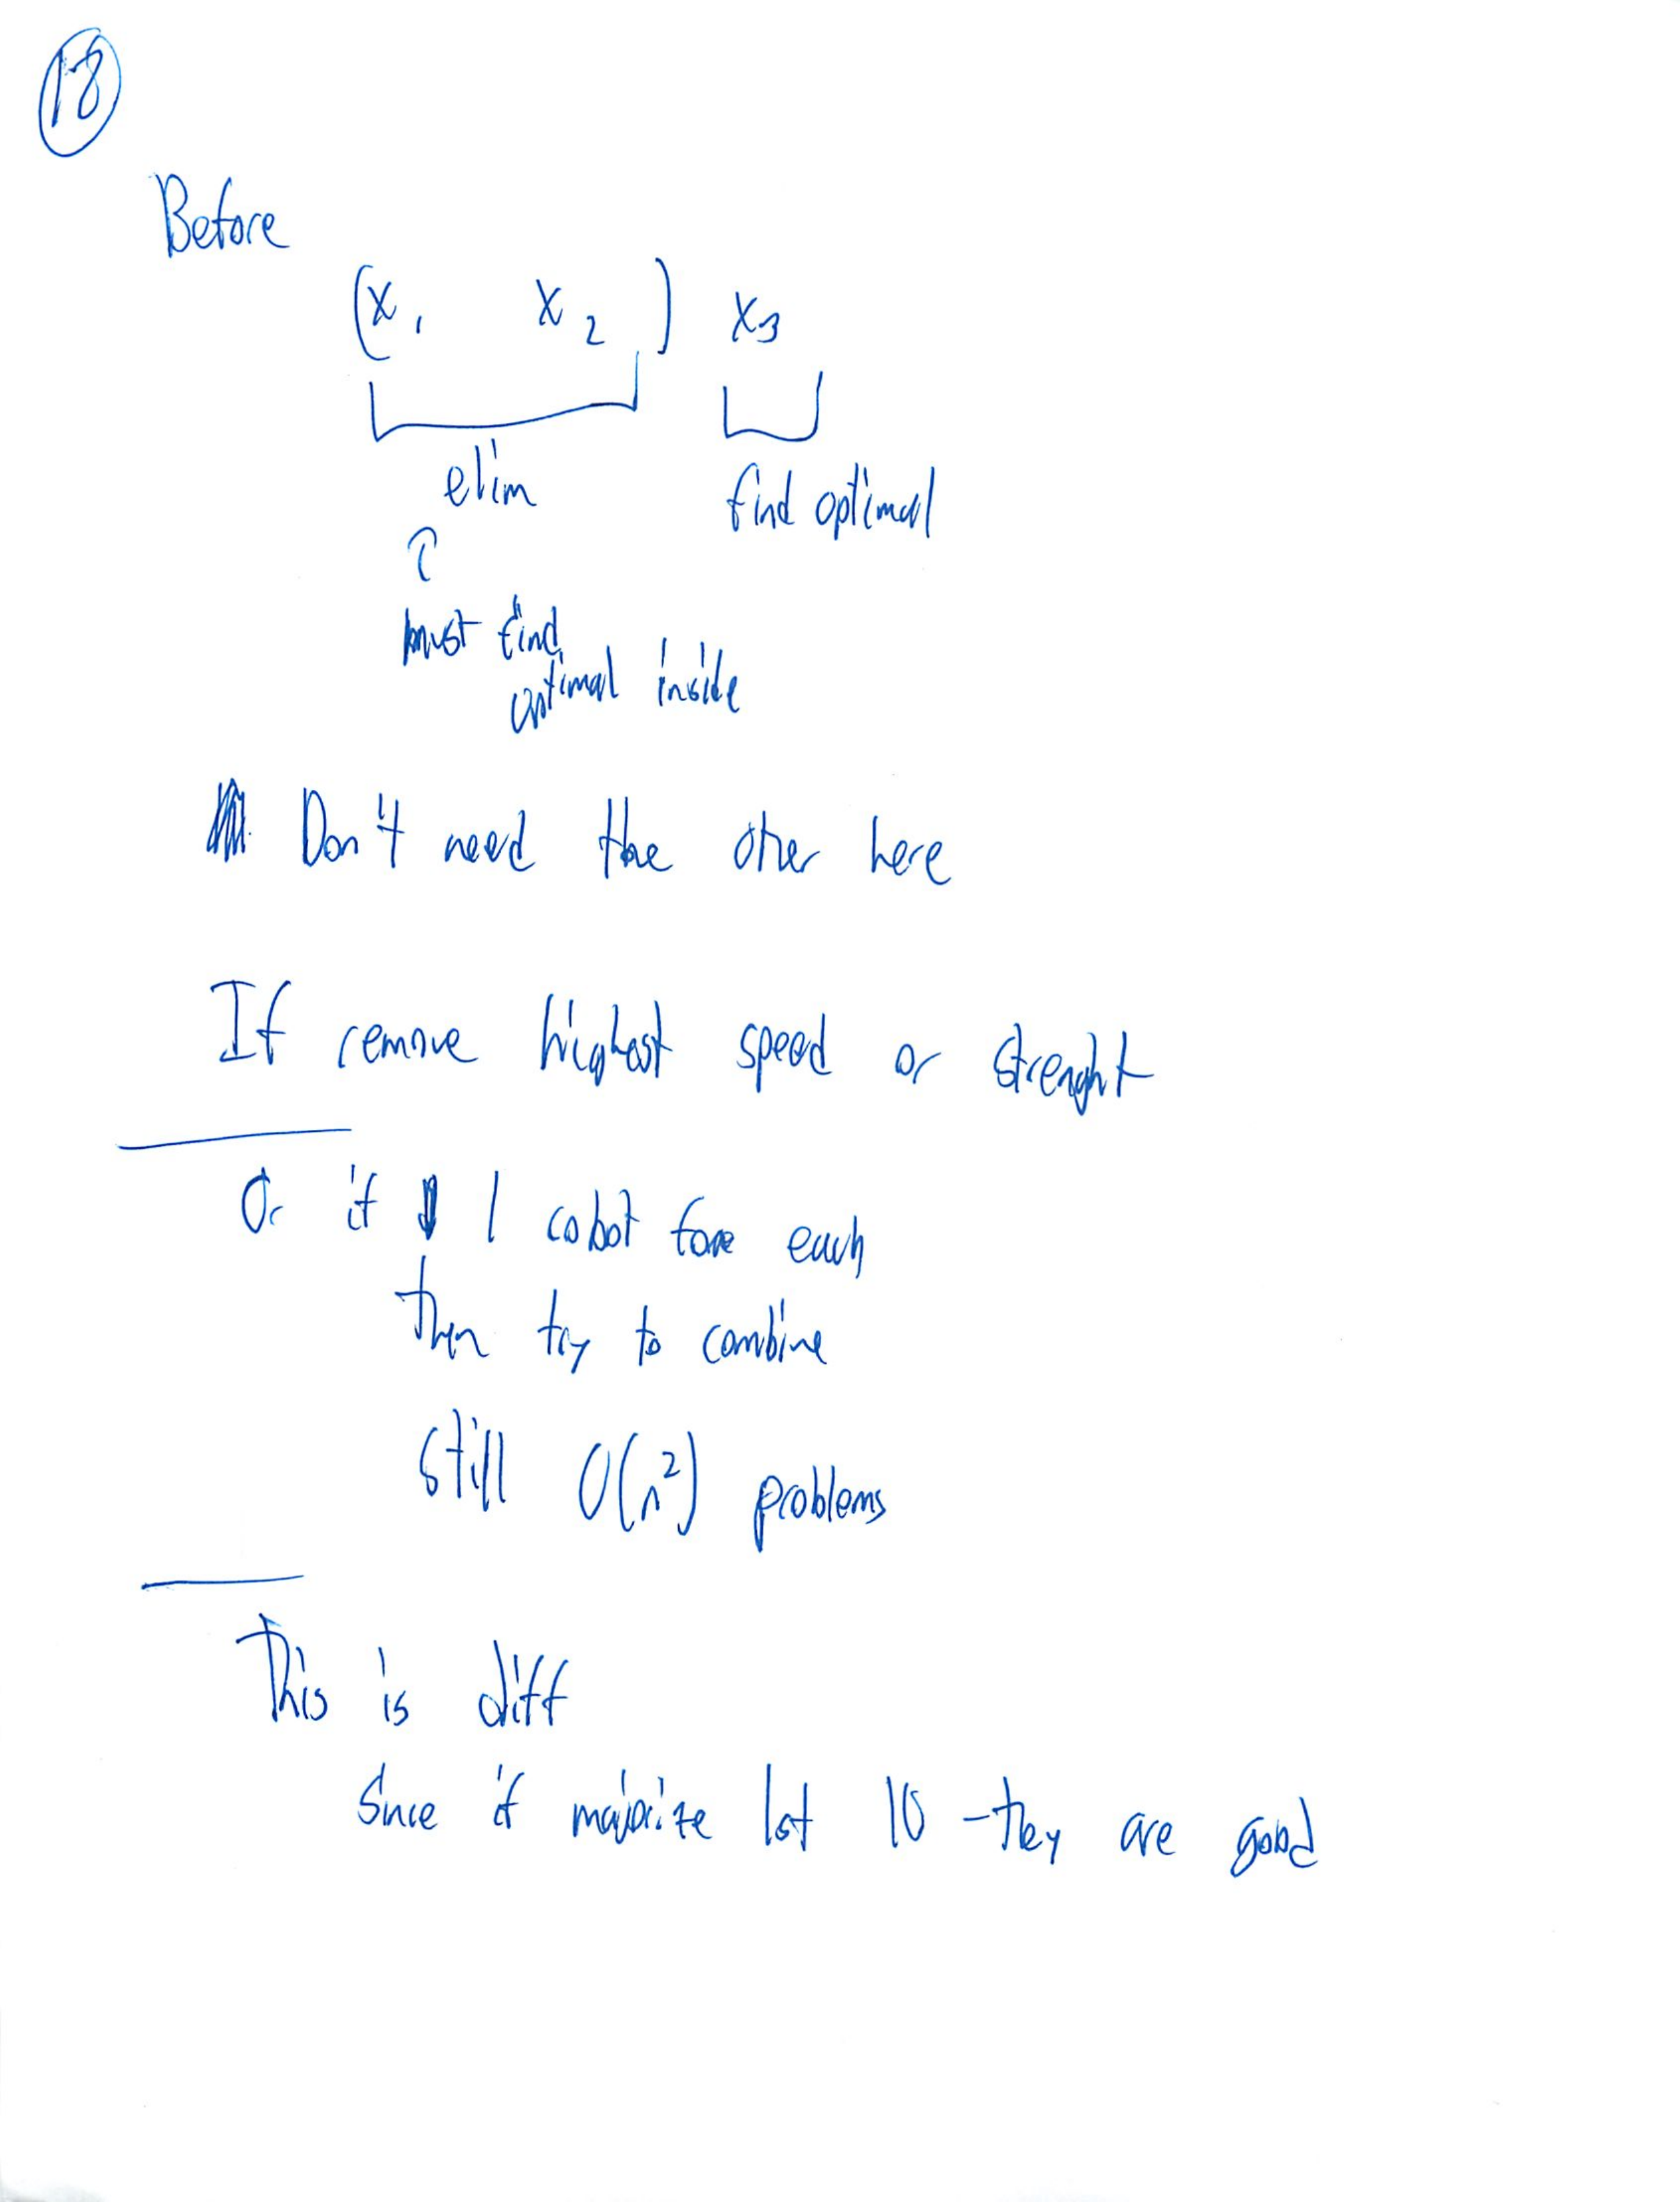 18
Before
(x₁ x₂) x₃
elim
find optimal
must find
optimal inside
Don't need the other here
If remove highest speed or strenght
Or if 1 cobot each
then try to combine
still O(n²) problems
This is diff
Since if majorize 10 - they are good